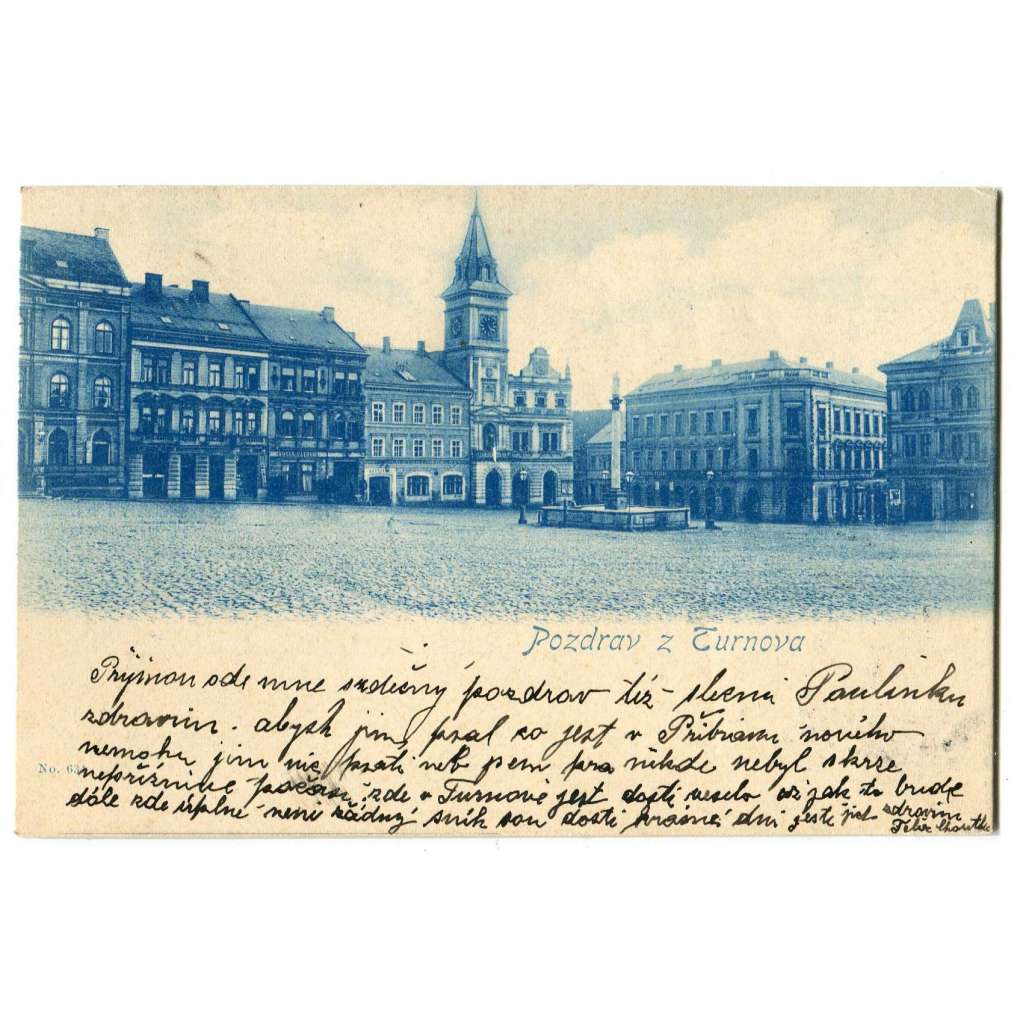 Pozdrav z Turnova
Přijmou ode mne srdečný pozdrav též slečnu Paulinku
zdravím. abysh jim psal co jest v Přibrami nového
nemohu jim nic psáti neb sem pra nikde nebyl skrze
No. 63
nepřížnivé počasí, zde v Turnově jest dosti veselo až jak to bude
dále zde úplně není žádný sníh sou dosti krásné dni ještě jich zdravím